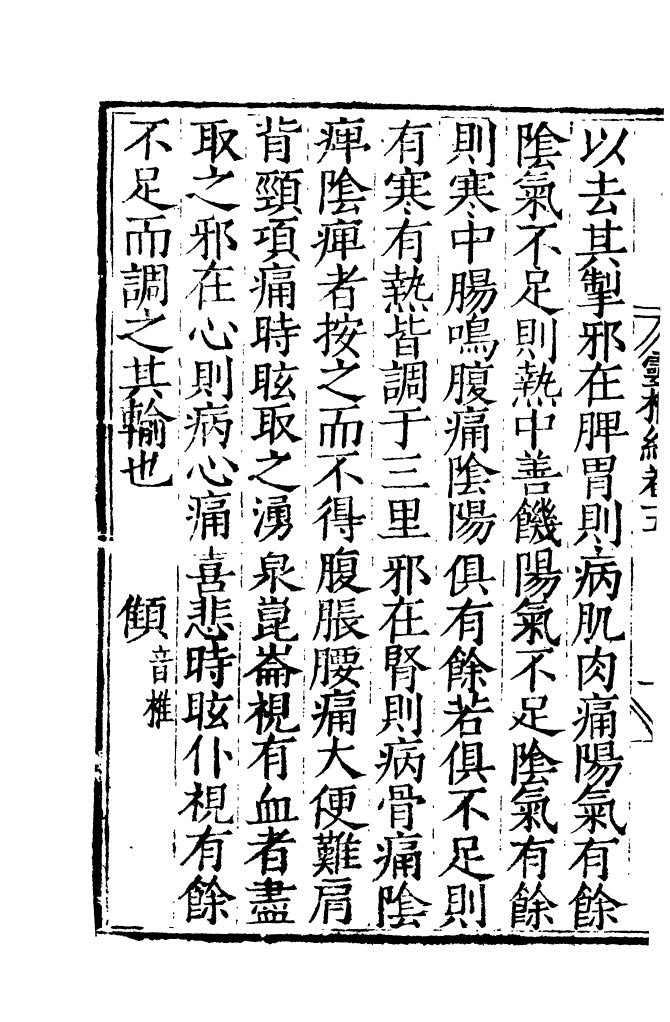 以去其掣邪在脾胃則病肌肉痛陽氣有餘
陰氣不足則熱中善饑陽氣不足陰氣有餘
則寒中腸鳴腹痛陰陽俱有餘若俱不足則
有寒有熱皆調于三里邪在腎則病骨痛陰
痺陰痺者按之而不得腹脹腰痛大便難肩
背頸項痛時眩取之湧泉崑崙視有血者盡
取之邪在心則病心痛喜悲時眩仆視有餘
不足而調之其輸也 顀音椎